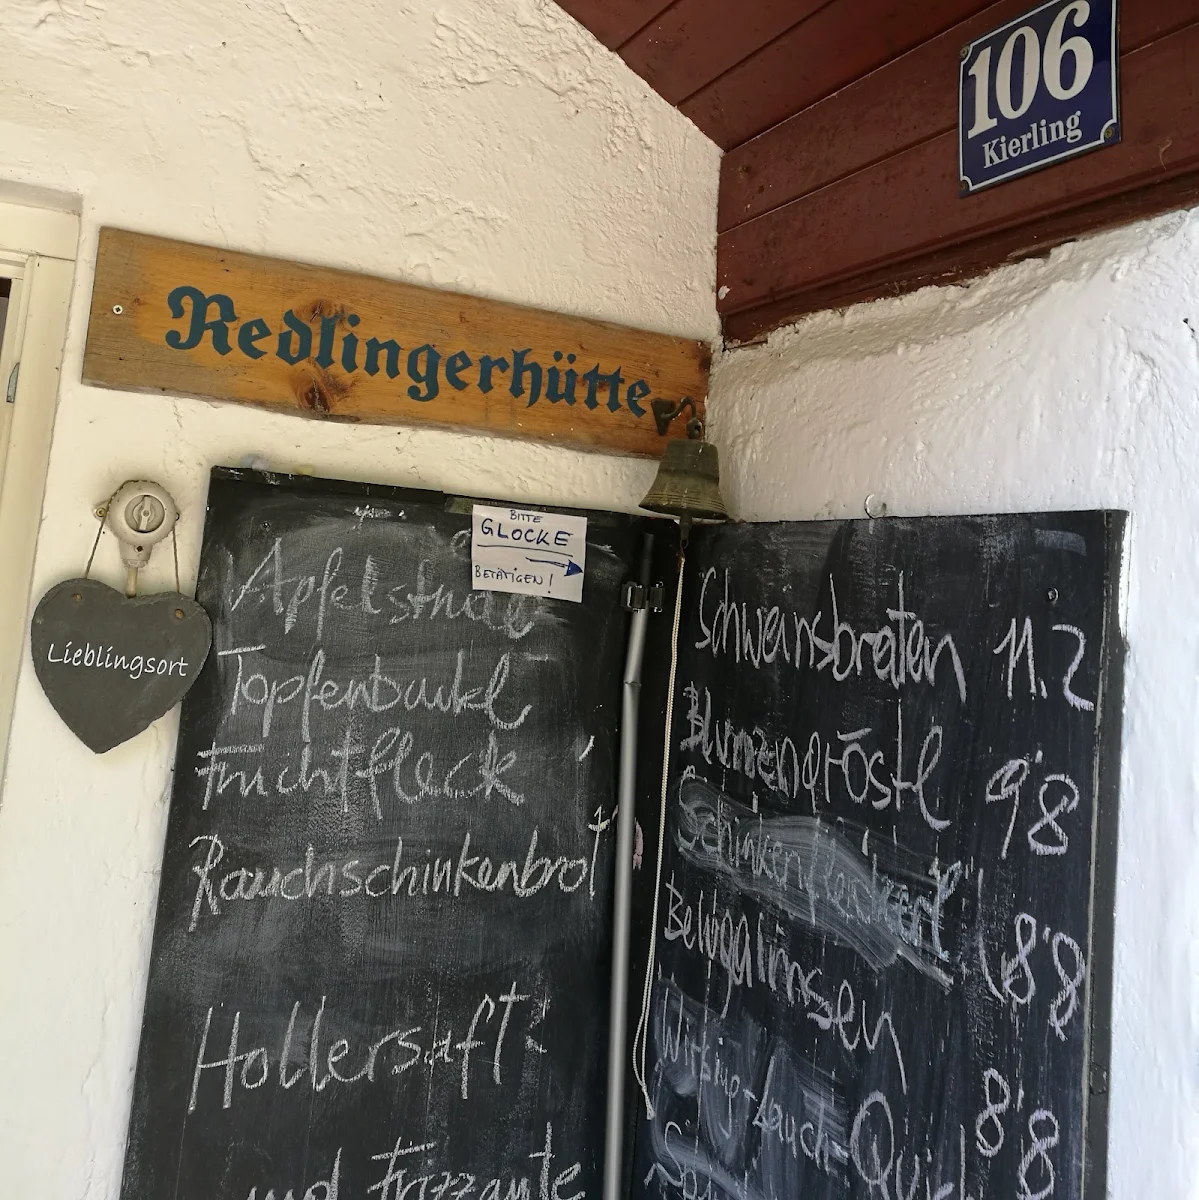 106
Kierling
Redlingerhütte
BITTE
GLOCKE
BETÄTIGEN!
Lieblingsort
Apfelstrudel
Topfenbuckl
Fruchtfleck
Rauchschinkenbrot
Hollersaft
und Frizzante
Schweinsbraten 11.2
Blunzengröstl 9'8
Schinkenfleckerl
Belugalinsen 8'8
Wirsing-Lauch-Quicl 8'8